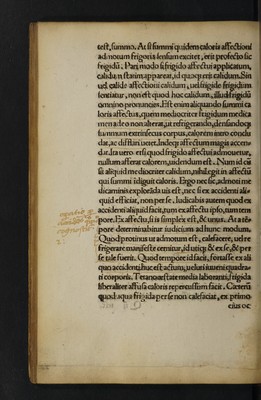 test, summo. At si summi quidem caloris affectioni
admotum frigoris sensum excitet, erit profecto sic
frigidū. Pari modo si frigido affectui applicatum,
calidum statim appareat, id quoque erit calidum. Sin
uel calidæ affectioni calidum, uel frigidæ frigidum
sentiatur, non est quod hoc calidum, illud frigidū
omnino pronuncies. Est enim aliquando summi ca
loris affectus, quem mediocriter frigidum medica
men adeo non alterat, ut refrigerando, densandoque
summum extrinsecus corpus, calorem intro conclu
dat, ac difflari uetet. Inde que affectum magis accen
dat. Ita uero et si quod frigido affectui admouetur,
nullum afferat calorem, uidendum est. Num id cū
sit aliquid mediocriter calidum, nihil egit in affectū
qui summi indiguit caloris. Ergo nec sic, admoni me
dicaminis exploranda uis est, nec si ex accidenti ali
quid efficiat, non per se. Iudicabis autem quod ex
accidenti aliquid facit, tum ex affectu ipso, tum tem
pore. Ex affectu, si is simplex est, & unus. At a tem
pore determinabitur iudicium ad hunc modum.
Quod protinus ut admotum est, calefacere, uel re
frigerare manifeste cernitur, id utique & ex se, & per
se tale fuerit. Quod tempore id facit, fortasse ex ali
quo accidenti huc est actum, ueluti iuueni quadra-
ti corporis. Tetano æstate media laboranti, frigida
liberaliter affusa caloris repercussum facit. Cæterū
quod aqua frigida per se non calefaciat, ex primo
eius oc